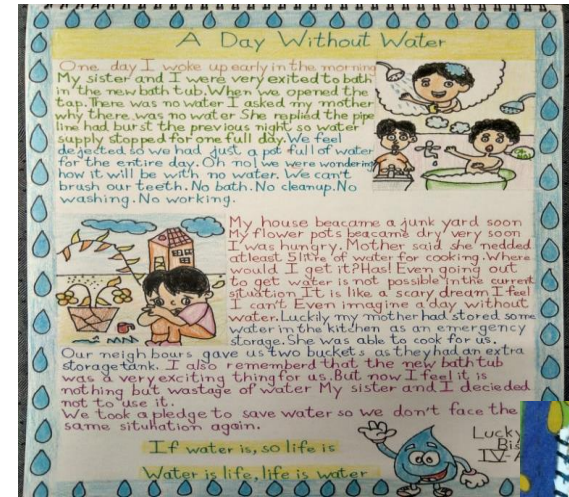 A Day Without Water
One day I woke up early in the morning
My sister and I were very exited to bath
in the new bath tub. When we opened the
tap. There was no water I asked my mother
why there was no water She replied the pipe
line had burst the previous night so water
supply stopped for one full day. We feel
dejected so we had just a pot full of water
for the entire day. Oh no! we were wondering
how it will be with no water. We can't
brush our teeth. No bath. No cleanup. No
washing. No working.
My house beacame a junk yard soon
My flower pots beacame dry very soon
I was hungry. Mother said she nedded
atleast 5 litre of water for cooking. Where
would I get it? Has! Even going out
to get water is not possible in the current
situation It is like a scary dream I feel
I can't Even imagine a day without
water. Luckily my mother had stored some
water in the kitchen as an emergency
storage. She was able to cook for us.
Our neighbours gave us two buckets as they had an extra
storage tank. I also rememberd that the new bath tub
was a very exciting thing for us. But now I feel it is
nothing but wastage of water My sister and I decieded
not to use it.
We took a pledge to save water so we don't face the
same situhation again.
If water is, so life is
Water is life, life is water
Lucky
Bis
IV-A